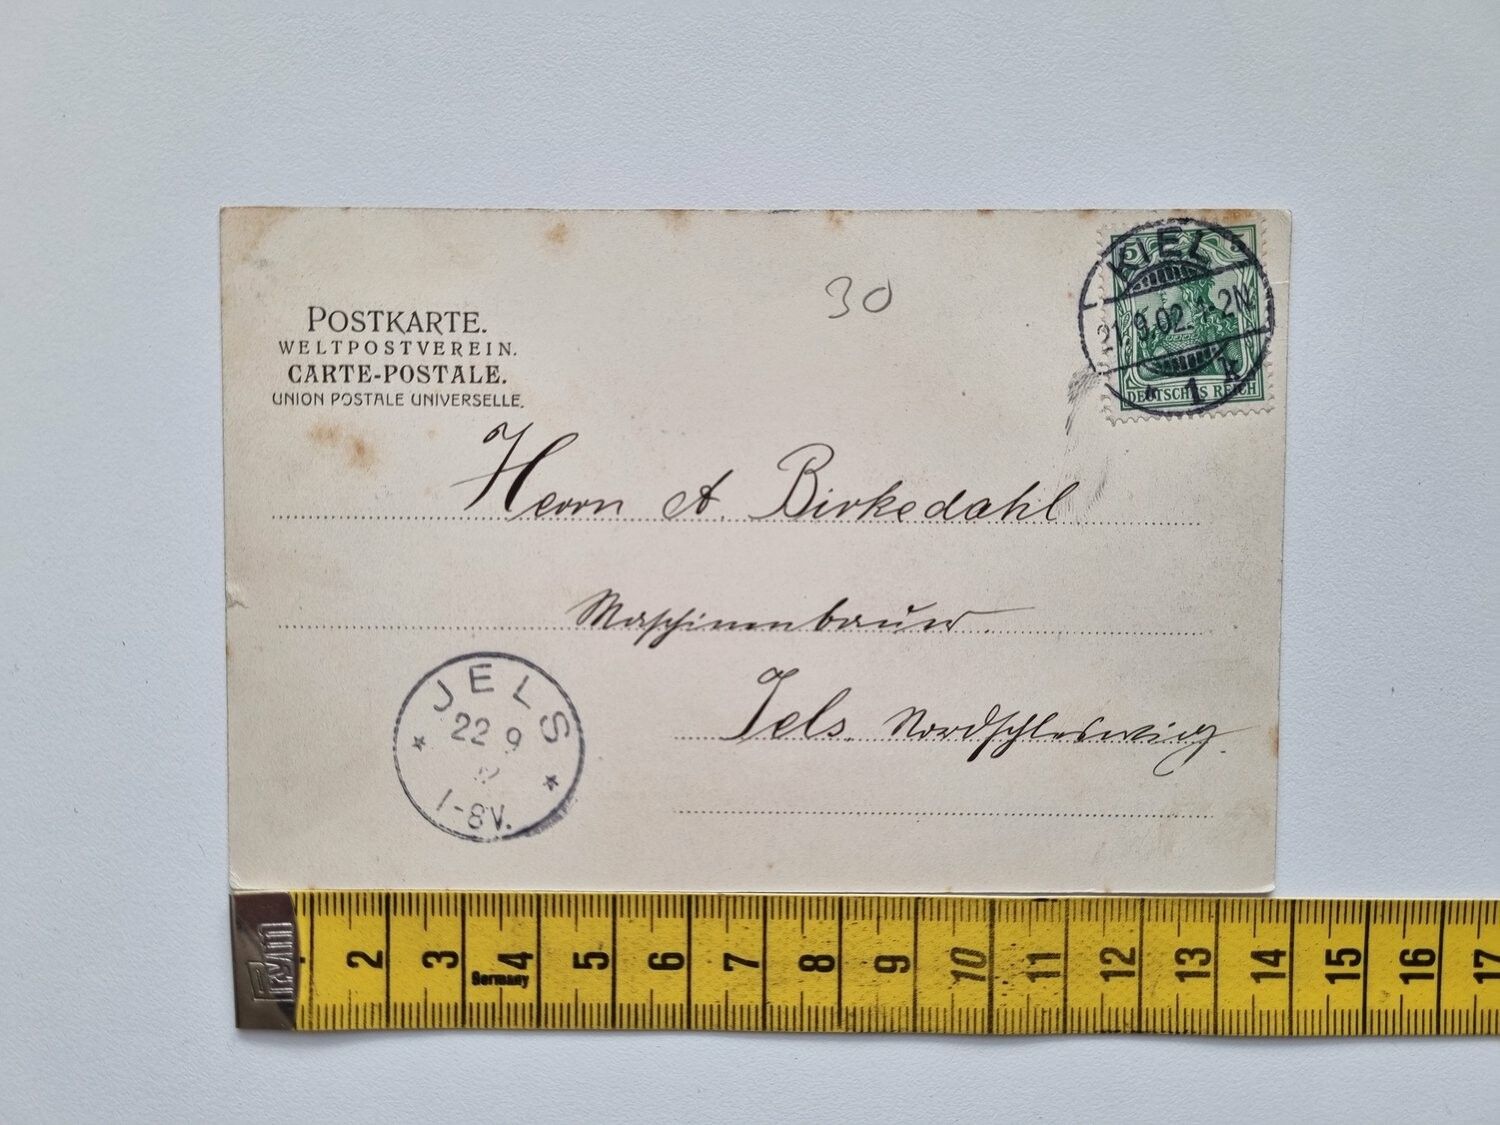 POSTKARTE.
WELTPOSTVEREIN.
CARTE-POSTALE.
UNION POSTALE UNIVERSELLE.
30
5 5
DEUTSCHES REICH
KIEL
21.9.02.1-2N
* 1 k
Herrn A. Birkedahl
Maschinenbauer.
Jels. Nordschleswig.
JELS
22 9
* *
1-8V.
Prym
2 3 4 5 6 7 8 9 10 11 12 13 14 15 16 17
Germany